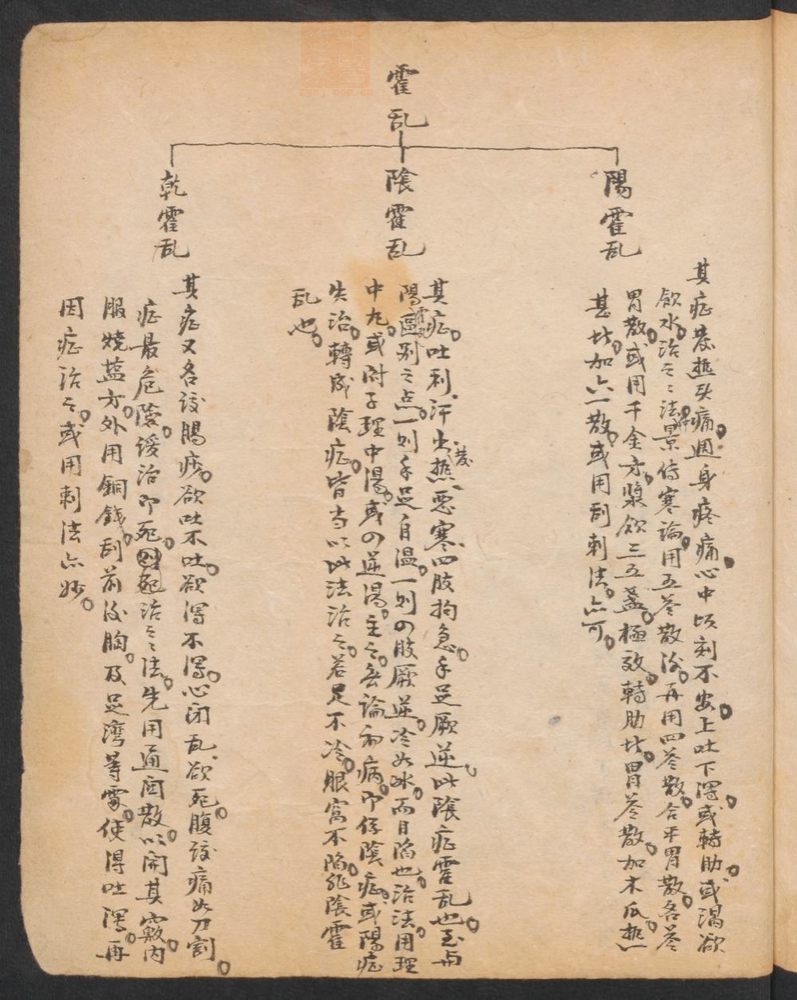 霍乱
陽霍乱
其症發熱頭痛。週身疼痛。心中頃刻不安。上吐下瀉。或轉肋。或渴欲
飲水。治之之法。景傷寒論。用五苓散治。再用四苓散。合平胃散。名苓
胃散。或用千金方。漿飲三五盞。極效。轉肋者。胃苓散。加木瓜。熱
甚者。加六一散。或用刮刺法。亦可。
陰霍乱
其症。吐利。汗出。發熱。惡寒。四肢拘急。手足厥逆。此陰症霍乱也。至与
陽霍區別之点。一則手足自温。一則四肢厥逆。冷如冰。而目陷也。治法。用理
中丸。或附子理中湯。或四逆湯。主之。無論初病。即係陰症。或陽症
失治。轉成陰症。皆当以此法治之。若足不冷。眼窩不陷。非陰霍
乱也。
乾霍乱
其症又名絞腸痧。欲吐不吐。欲瀉不瀉。心悶乱。欲死。腹絞痛如刀割。
症最危險。緩治即死。治之之法。先用通関散。以開其竅。内
服燒鹽方。外用銅錢。刮前後胸。及足灣等處。使得吐瀉。再
因症治之。或用刺法亦妙。